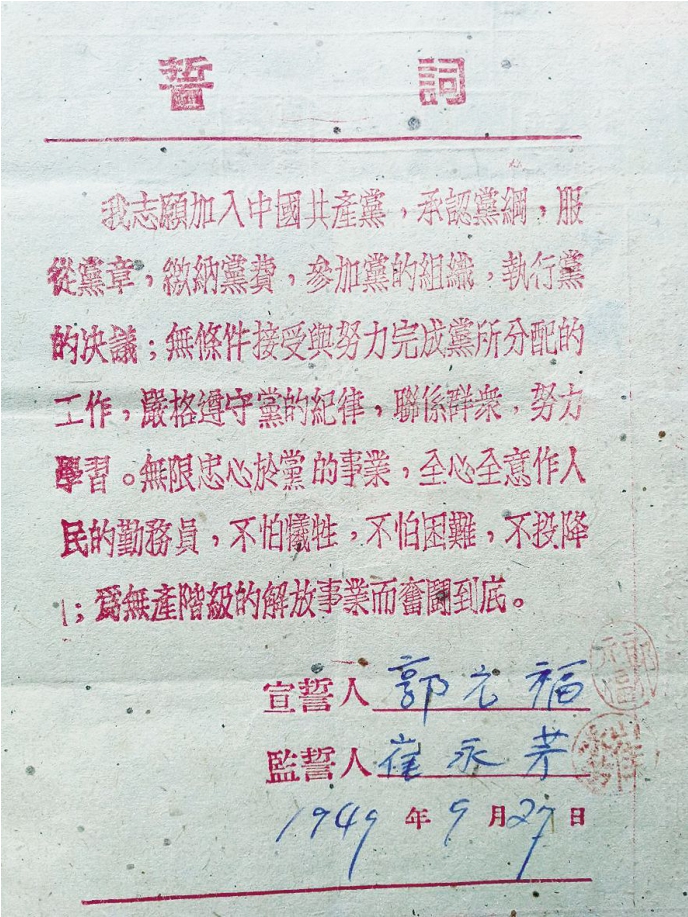 誓 詞
我志願加入中國共產黨，承認黨綱，服
從黨章，繳納黨費，參加黨的組織，執行黨
的决議；無條件接受與努力完成黨所分配的
工作，嚴格遵守黨的紀律，聯係群衆，努力
學習。無限忠心於黨的事業，全心全意作人
民的勤務員，不怕犧牲，不怕困難，不投降
；爲無產階級的解放事業而奮鬪到底。
宣誓人 郭元福
監誓人 崔永芳
1949年9月27日